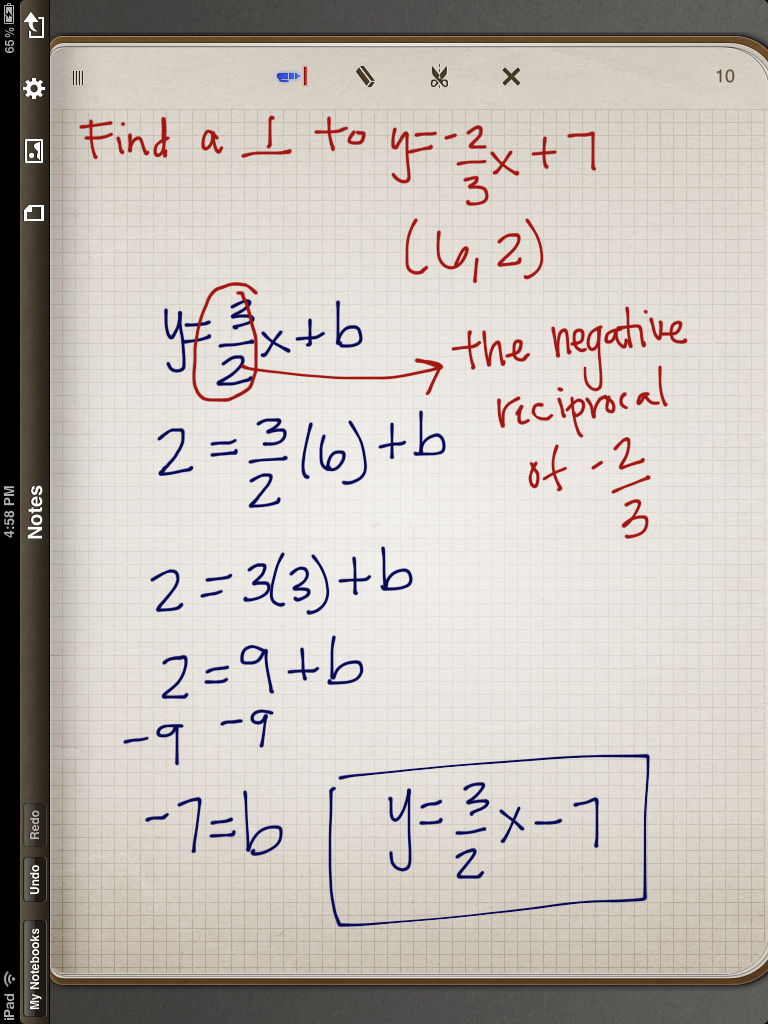 iPad 4:58 PM 65%
My Notebooks Undo Redo Notes
10
Find a ⊥ to y=-2/3x+7
(6,2)
y=3/2x+b
the negative
reciprocal
of -2/3
2=3/2(6)+b
2=3(3)+b
2=9+b
-9 -9
-7=b
y=3/2x-7